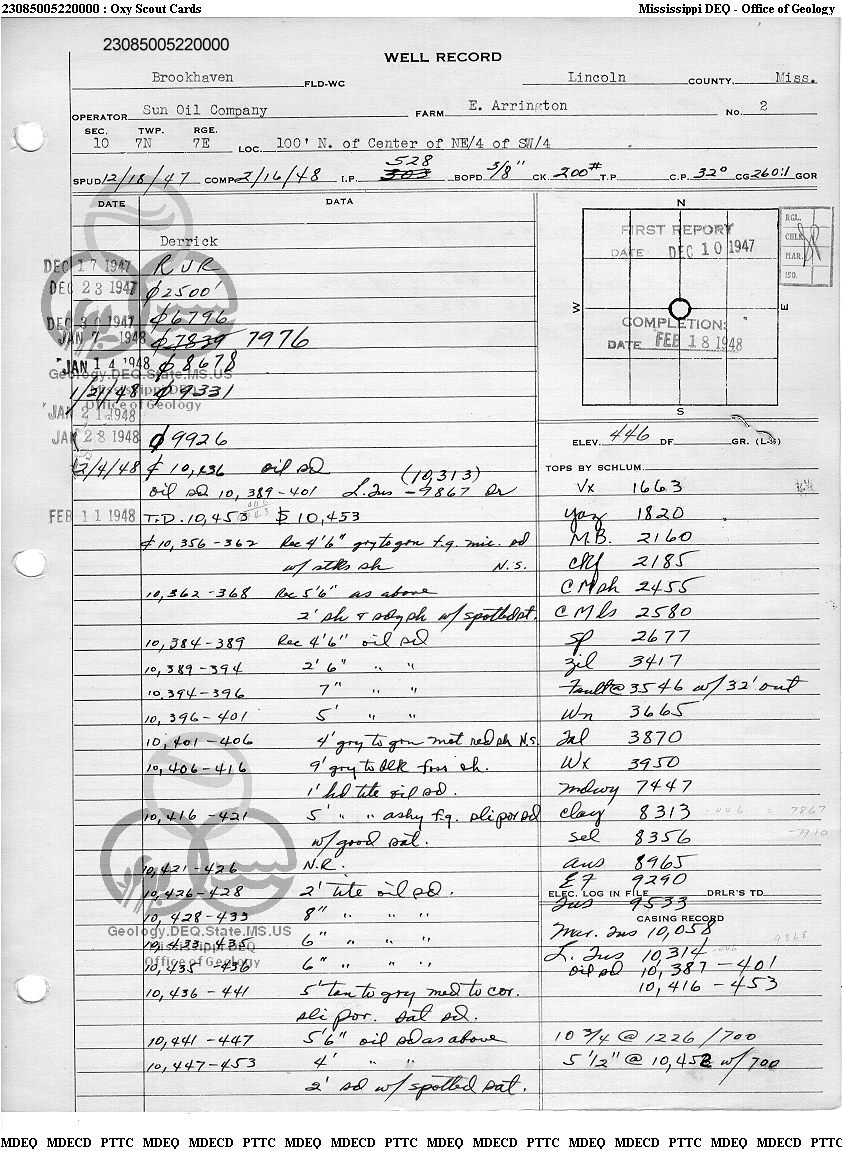 23085005220000 : Oxy Scout Cards
Mississippi DEQ - Office of Geology
23085005220000
WELL RECORD
Brookhaven FLD-WC Lincoln COUNTY, Miss.
OPERATOR Sun Oil Company FARM E. Arrington No. 2
SEC. TWP. RGE.
10 7N 7E LOC. 100' N. of Center of NE/4 of SW/4
SPUD 12/18/47 COMP. 2/16/48 I.P. 303 528 BOPD 3/8" CK. 200# T.P. C.P. 32° CG 260:1 GOR
DATE DATA
Derrick
DEC 17 1947 RUR
DEC 23 1947 ₵2500'
DEC 30 1947 ₵6796
JAN 7 1948 ₵7839 7976
JAN 14 1948 ₵8678
1/21/48 ₵9331
JAN 21 1948
JAN 28 1948 ₵9926
2/4/48 ₵ 10,436 oil sd (10,313)
oil sd 10,389-401 L. Tus -9867 Dr
FEB 11 1948 T.D. 10,453 $ 10,453
₵10,356-362 Rec 4'6" gry to grn f.g. mic. sd
w/ stks sh N.S.
10,362-368 Rec 5'6" as above
2' sh & sdy sh w/ spotted st.
10,384-389 Rec 4'6" oil sd
10,389-394 2'6" " "
10,394-396 7" " "
10,396-401 5' " "
10,401-406 4' gry to grn mot red sh N.S.
10,406-416 9' gry to blk foss sh.
1' hd tite oil sd.
10,416-421 5' " " ashy f.g. sli por sd
w/ good sat.
10,421-426 N.R.
10,426-428 2' tite oil sd.
10,428-433 8" " " "
10,433-435 6" " " "
10,435-436 6" " " "
10,436-441 5' tan to gry med to cor.
sli por. sat sd.
10,441-447 5'6" oil sd as above
10,447-453 4' " "
2' sd w/ spotted sat.
N
W
E
S
FIRST REPORT
DATE DEC 10 1947
COMPLETION:
DATE FEB 18 1948
RGL.
CHLK
MAR.
ISO.
ELEV. 446 DF. GR.
TOPS BY SCHLUM.
Vx 1663
Yaz 1820
M.B. 2160
Ckf 2185
CM sh 2455
CM ls 2580
Sp 2677
Zil 3417
Fault @ 3546 w/ 32' out
Wn 3665
Tal 3870
Wx 3950
Mdwy 7447
Clay 8313
Sel 8356
Aus 8965
EF 9290
ELEC. LOG IN FILE DRLR'S TD
Tus 9533
CASING RECORD
Mar. Tus 10,058
L. Tus 10,314
oil sd 10,387-401
10,416-453
10 3/4 @ 1226/700
5 1/2" @ 10,452 w/ 700
Geology.DEQ.State.MS.US
Mississippi DEQ
Office of Geology
Geology.DEQ.State.MS.US
Mississippi DEQ
Office of Geology
MDEQ MDECD PTTC MDEQ MDECD PTTC MDEQ MDECD PTTC MDEQ MDECD PTTC MDEQ MDECD PTTC MDEQ MDECD PTTC